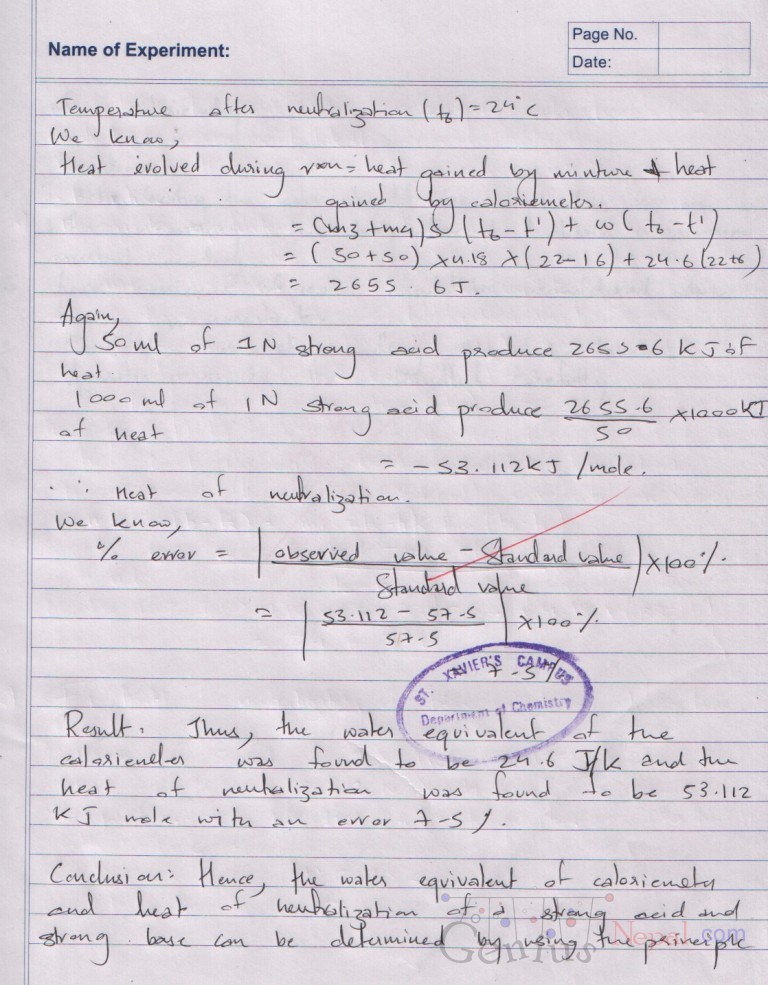 Name of Experiment:
Page No.
Date:
Temperature after neutralization (t₆) = 24°C
We know,
Heat evolved during rxn = heat gained by mixture + heat
gained by caloriemeter.
= (m3 + m4) S (t₆ - t') + w ( t₆ - t')
= ( 50+50) x 4.18 x (22-16) + 24.6 (22+6)
= 2655.6J.
Again,
50 ml of 1N strong acid produce 2655.6 KJ of
heat.
1000 ml of 1N strong acid produce 2655.6/50 x1000KJ
of heat
= - 53.112 KJ /mole.
∴ Heat of neutralization.
We know,
% error = | observed value - Standard value / Standard value | x100%
= | 53.112 - 57.5 / 57.5 | x100%
7.5%
ST. XAVIER'S CAMPUS
Department of Chemistry
Result: Thus, the water equivalent of the
caloriemeter was found to be 24.6 J/k and the
heat of neutralization was found to be 53.112
KJ mole with an error 7.5%.
Conclusion: Hence, the water equivalent of caloriemety
and heat of neutralization of a strong acid and
strong base can be determined by using the principle
GeniusNepal.com